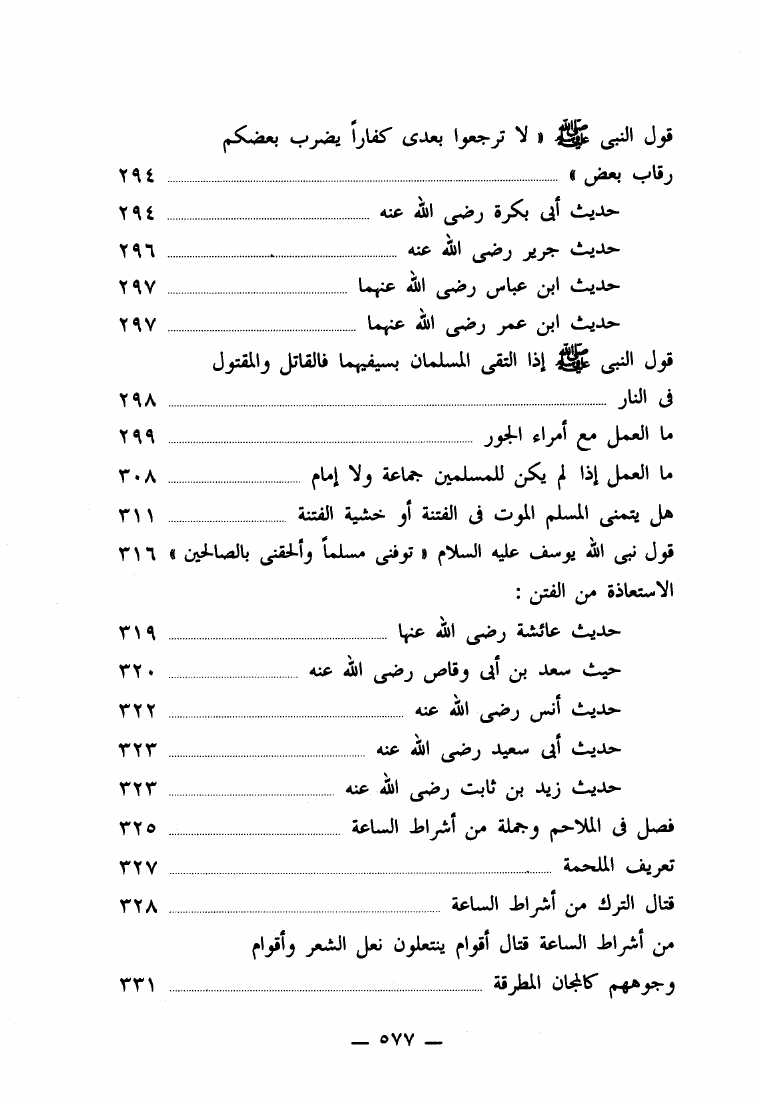 قول النبى ﷺ « لا ترجعوا بعدى كفاراً يضرب بعضكم
رقاب بعض » ٢٩٤
حديث أبى بكرة رضى الله عنه ٢٩٤
حديث جرير رضى الله عنه ٢٩٦
حديث ابن عباس رضى الله عنهما ٢٩٧
حديث ابن عمر رضى الله عنهما ٢٩٧
قول النبى ﷺ إذا التقى المسلمان بسيفيهما فالقاتل والمقتول
فى النار ٢٩٨
ما العمل مع أمراء الجور ٢٩٩
ما العمل إذا لم يكن للمسلمين جماعة ولا إمام ٣٠٨
هل يتمنى المسلم الموت فى الفتنة أو خشية الفتنة ٣١١
قول نبى الله يوسف عليه السلام « توفنى مسلماً وألحقنى بالصالحين » ٣١٦
الاستعاذة من الفتن :
حديث عائشة رضى الله عنها ٣١٩
حيث سعد بن أبى وقاص رضى الله عنه ٣٢٠
حديث أنس رضى الله عنه ٣٢٢
حديث أبى سعيد رضى الله عنه ٣٢٣
حديث زيد بن ثابت رضى الله عنه ٣٢٣
فصل فى الملاحم وجملة من أشراط الساعة ٣٢٥
تعريف الملحمة ٣٢٧
قتال الترك من أشراط الساعة ٣٢٨
من أشراط الساعة قتال أقوام ينتعلون نعل الشعر وأقوام
وجوههم كالمجان المطرقة ٣٣١
— ٥٧٧ —